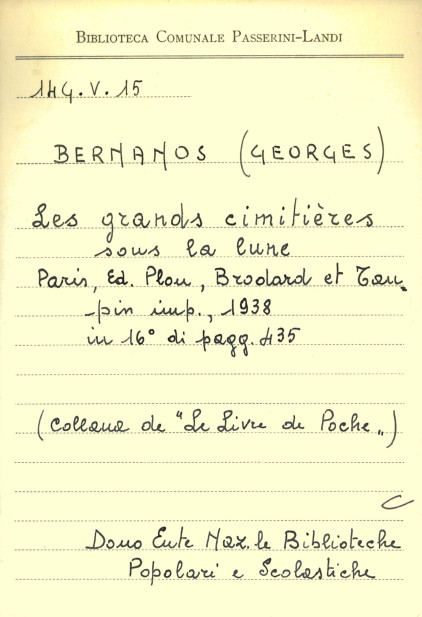 BIBLIOTECA COMUNALE PASSERINI-LANDI
14G.V.15
BERNANOS (GEORGES)
Les grands cimitières
sous la lune
Paris, Ed. Plon, Brodard et Tau-
-pin imp., 1938
in 16° di pagg. 435
(Collana de "Le Livre de Poche„)
C
Dono Ente Naz.le Biblioteche
Popolari e Scolastiche